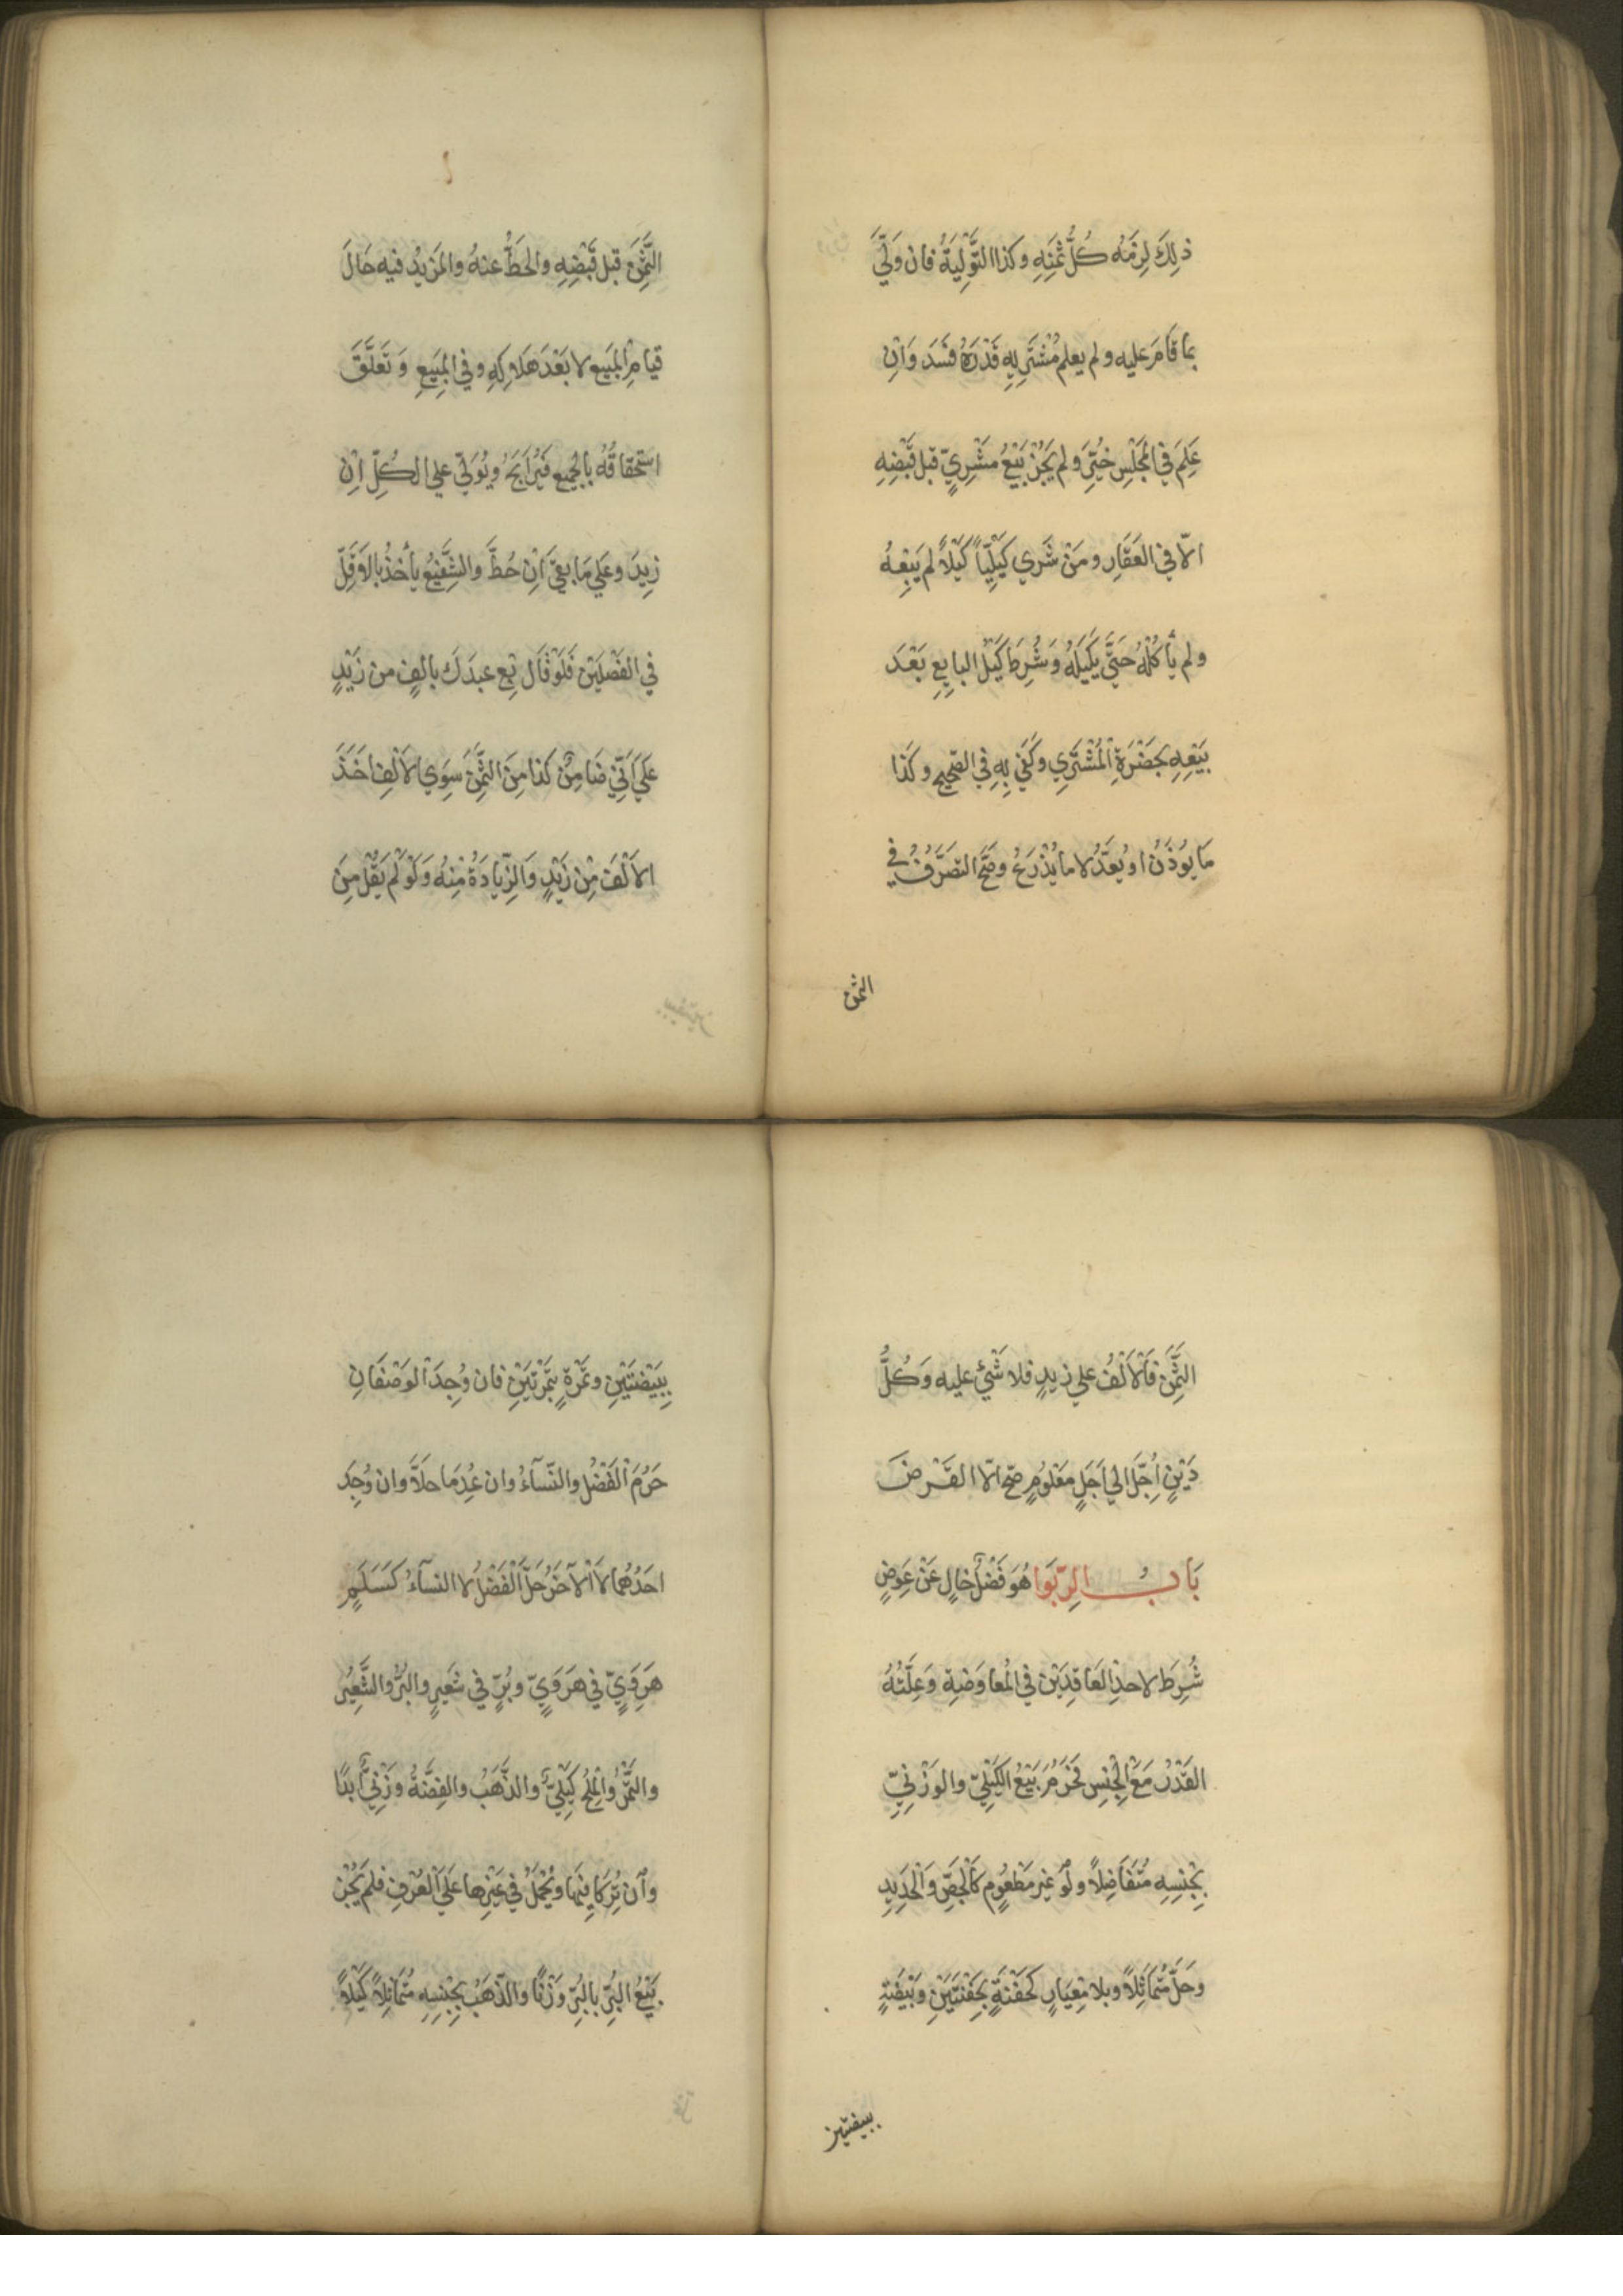 ذٰلِكَ لَزِمَهُ كُلُّ ثَمَنِهِ وكذا التَّوْلِيَةُ فان وَلّيَ
بما قَامَ عليه ولم يعلم مُشْتَرِيهِ قَدْرَهُ فَسَدَ وَاِنْ
عَلِمَ في المجْلِسِ خُيِّرَ ولم يَجُزْ بَيْعُ مَشْرِيٍّ قبل قَبْضِهِ
الّا في العَقَارِ ومَنْ شَرَي كَيْلِيّاً كَيْلاً لم يَبِعْهُ
ولم يأكُلْهُ حَتَّي يَكِيلَهُ وَشُرِطَ كَيْلُ البايِعِ بَعْدَ
بَيْعِهِ بحَضْرَةِ الْمُشْتَرِي وكُفِيَ بِهِ في الصّحِيحِ وكَذَا
مَا يُوزَنُ او يُعَدُّ لا ما يُذْرَعُ وصَحَّ التصَرُّفُ في
الثمن
الثَّمَنِ قبل قَبْضِهِ والحَطُّ عنهُ والمَزِيْدُ فيه حَالَ
قيامِ المَبِيعِ لا بَعْدَ هَلَاكِهِ وفي المَبِيْعِ وَتَعَلَّقَ
استحقَاقُهُ بالجَمِيعِ فَيُرَابَحُ ويُوَلّيَ علي الكُلِّ اِنْ
زِيدَ وعَلي مَا بقِيَ اِنْ حُطَّ والشَّفِيْعُ يأخُذُ بالاَقَلِّ
في الفَصْلَيْنِ فَلَوْ قَال بِع عبدَكَ بالفٍ من زَيْدٍ
عَلَي اَنّي ضَامِنٌ كذا مِنَ الثَّمَنِ سِوَي الاَلْفِ اخَذَ
الاَلْفَ مِنْ زَيْدٍ وَالزِّيادَةُ مِنْهُ وَلَوْ لَمْ يَقُلْ مِنَ
الثَّمَنِ فَالْاَلْفُ علي زيدٍ فلا شَيْئَ عليه وَكُلُّ
دَيْنٍ اُجِّلَ الي اَجَلٍ مَعْلُومٍ صحّ الّا القَرْضَ
بَابُ الرِبَوا هُوَ فَضْلٌ خالٍ عَنْ عِوَضٍ
شُرِطَ لاحدِ العَاقِدَيْنِ في المُعاوَضةِ وَعِلَّتُهُ
القَدْرُ مَعَ الْجِنْسِ فَحَرُمَ بَيْعُ الكَيْلِيِّ والوَزْنِيِّ
بجِنْسِهِ مُتَفَاضِلاً ولَو غيرَ مَطْعُومٍ كالْجِصِّ والْحَدِيدِ
وحَلَّ مُتَمَاثِلاً وبلا مِعيَارٍ كحَفْنَةٍ بحَفْنَتَيْنِ وبَيْضَةٍ
ببيضتين
بِبَيْضَتَيْنِ وتَمْرَةٍ بتَمْرَتَيْنِ فان وُجِدَ الوَصْفَانِ
حَرُمَ الْفَضْلُ والنّسَآءُ وان عُدِمَا حلَاَّ وان وُجِدَ
احَدُهُما لا الْآخَرُ حَلَّ الْفَضْلُ لا النسآءُ كَسَلَمِ
هَرَوِيٍّ في هَرَوِيٍّ وبُرٍّ في شَعِيرٍ والبُرُّ والشَّعِيْرُ
والتَّمْرُ والْمِلْحُ كَيْلِيٌّ والذَّهَبُ والفِضَّةُ وَزْنِيٌّ اَبدًا
وانْ تُرِكَا فيها ويُحْمَلُ في غَيْرِها عَلَي الْعُرْفِ فلم يَجُزْ
بَيْعُ البُرِّ بالبُرِّ وَزْنًا والذّهَبِ بجِنْسِهِ مُتَماثِلاً كَيْلاً